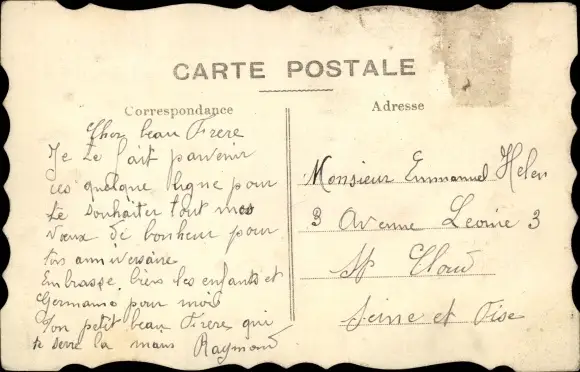 CARTE POSTALE
Correspondance
Cher beau Frere
Je te fait parvenir
ces quelque ligne pour
te souhaiter tout mes
vœux de bonheur pour
ton anniversaire
Embrasse biens les enfants et
Germaine pour moi
Ton petit beau Frere qui
te serre la main Raymond
Adresse
Monsieur Emmanuel Helen
3 Avenue Leonie 3
St Cloud
Seine et Oise